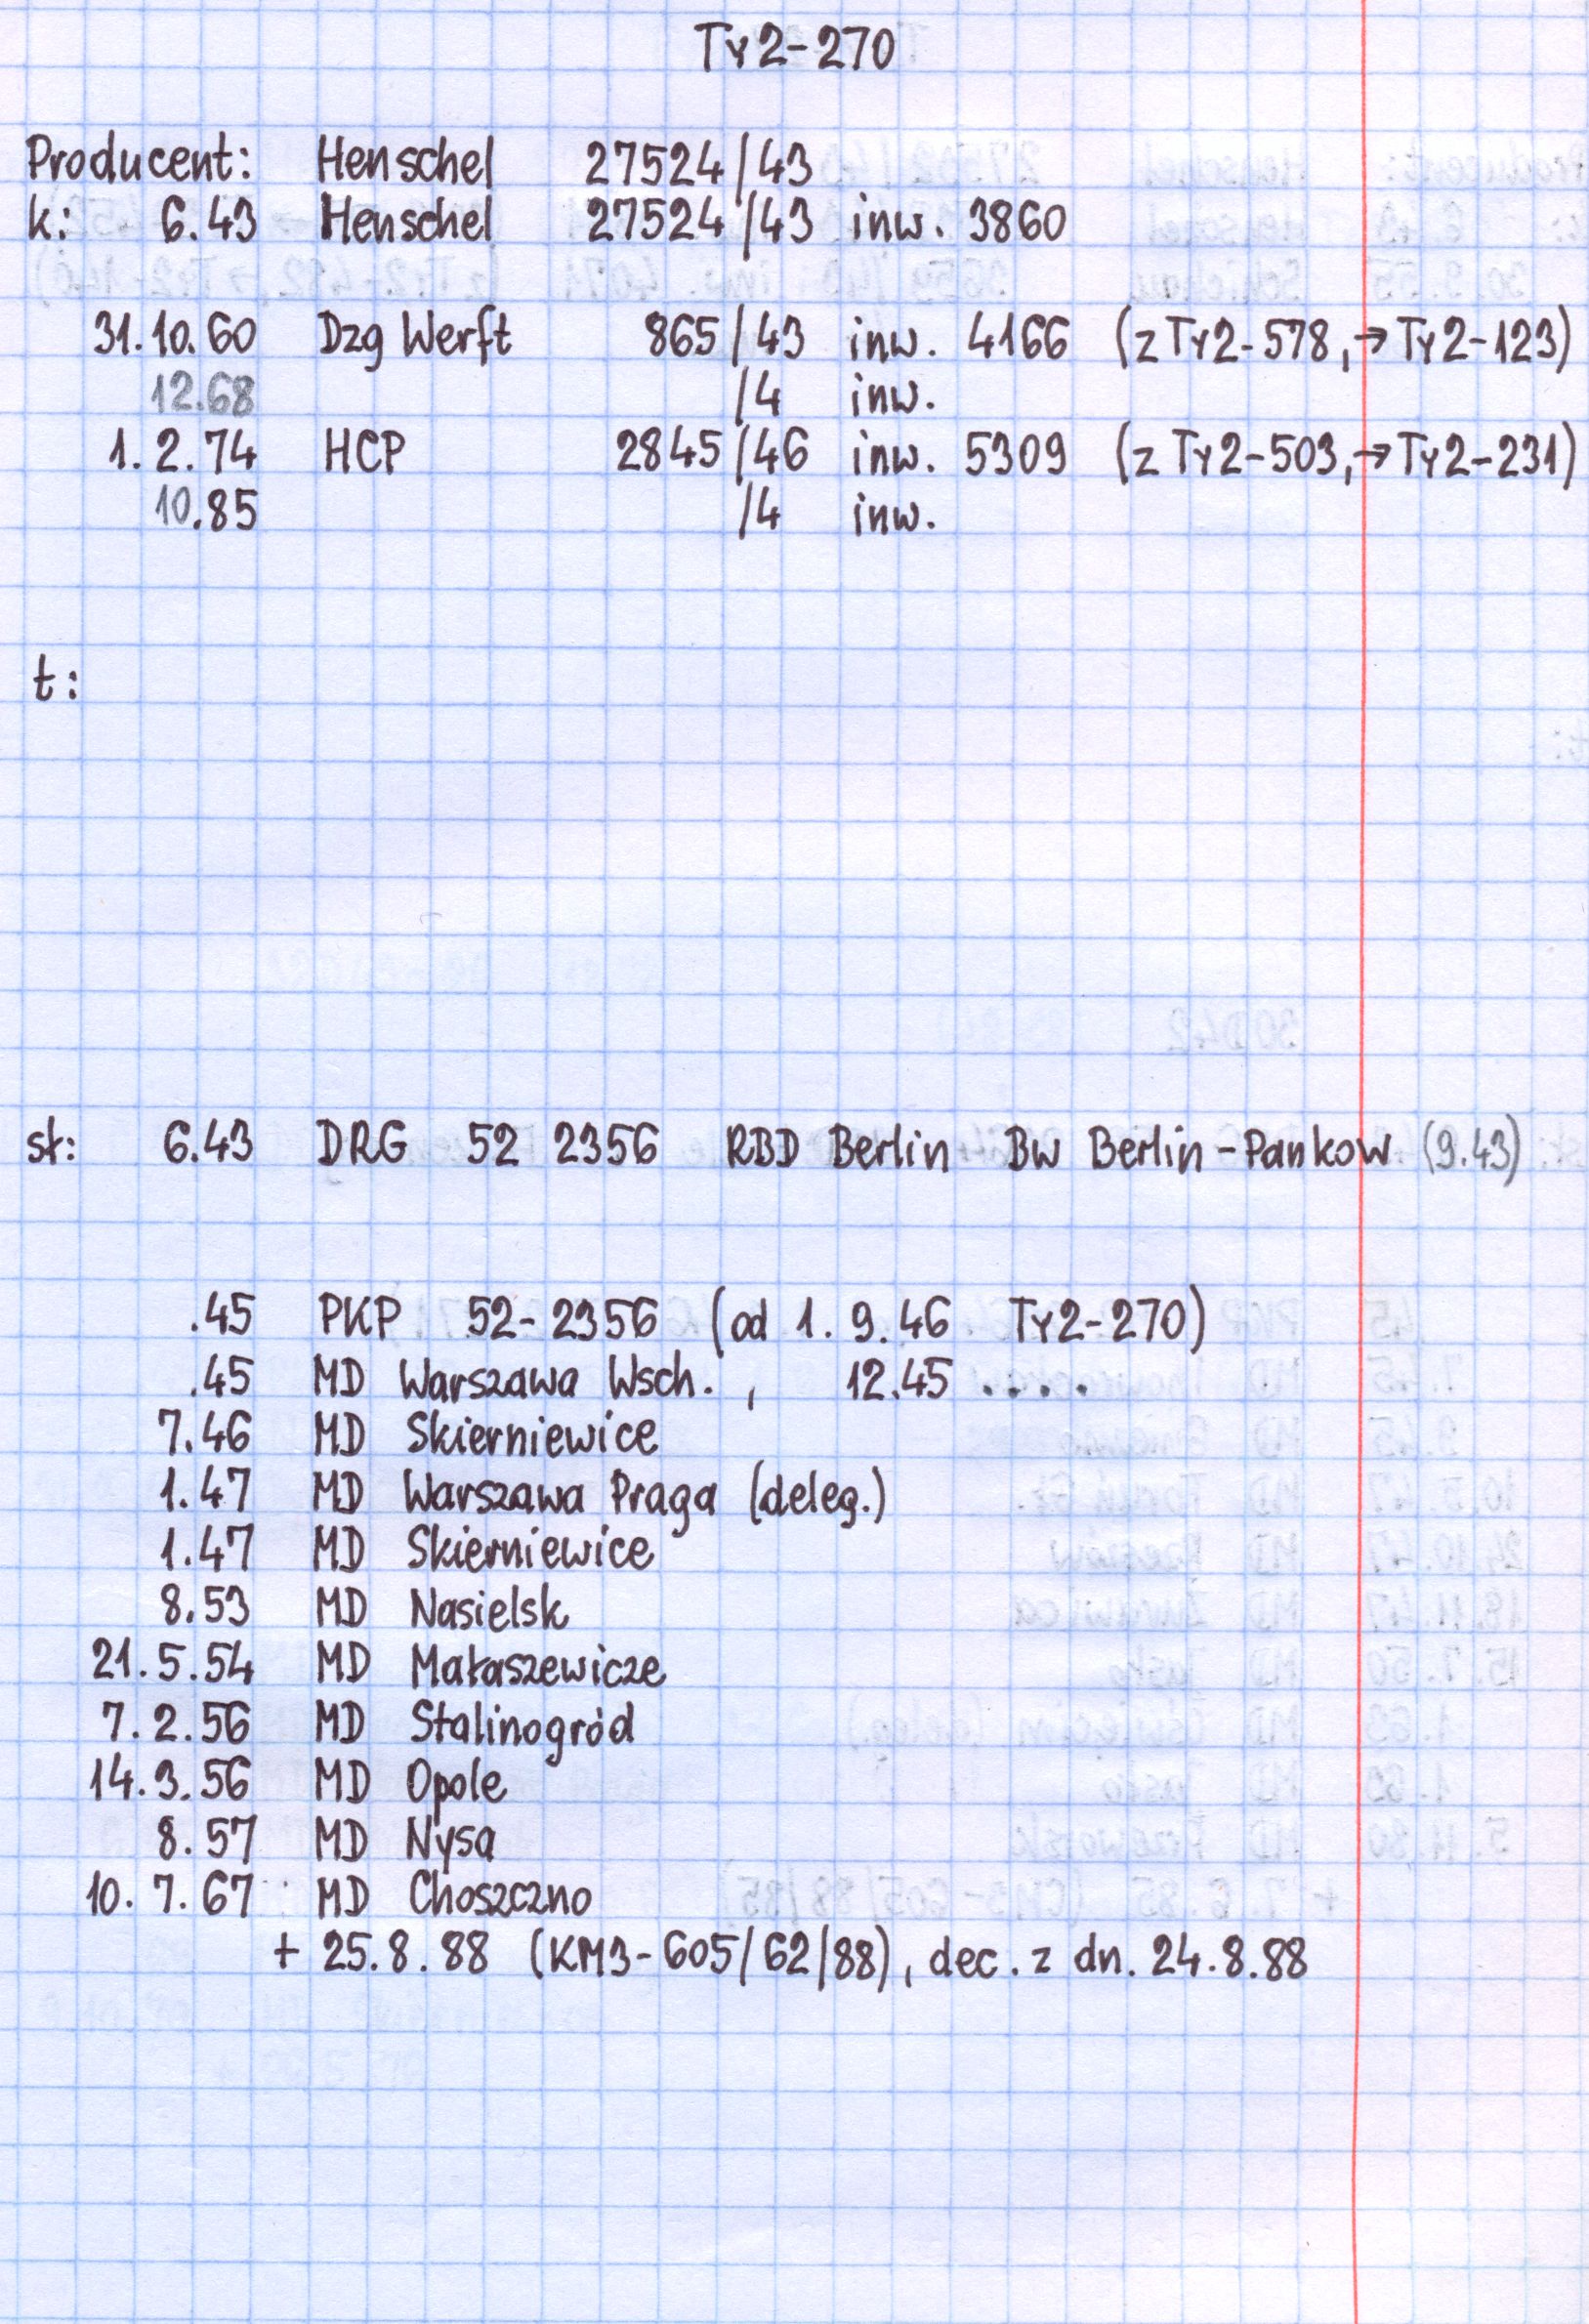 Ty2-270
Producent: Henschel 27524/43
k: 6.43 Henschel 27524/43 inw. 3860
31.10.60 Dzg Werft 865/43 inw. 4166 (z Ty2-578, → Ty2-123)
12.68 /4 inw.
1.2.74 HCP 2845/46 inw. 5309 (z Ty2-503, → Ty2-231)
10.85 /4 inw.
t:
st: 6.43 DRG 52 2356 RBD Berlin Bw Berlin-Pankow (9.43)
.45 PKP 52-2356 (od 1.9.46 Ty2-270)
.45 MD Warszawa Wsch., 12.45 ....
7.46 MD Skierniewice
1.47 MD Warszawa Praga (deleg.)
1.47 MD Skierniewice
8.53 MD Nasielsk
21.5.54 MD Małaszewicze
7.2.56 MD Stalinogród
14.3.56 MD Opole
8.57 MD Nysa
10.7.67 MD Choszczno
+ 25.8.88 (KM3-605/62/88), dec. z dn. 24.8.88